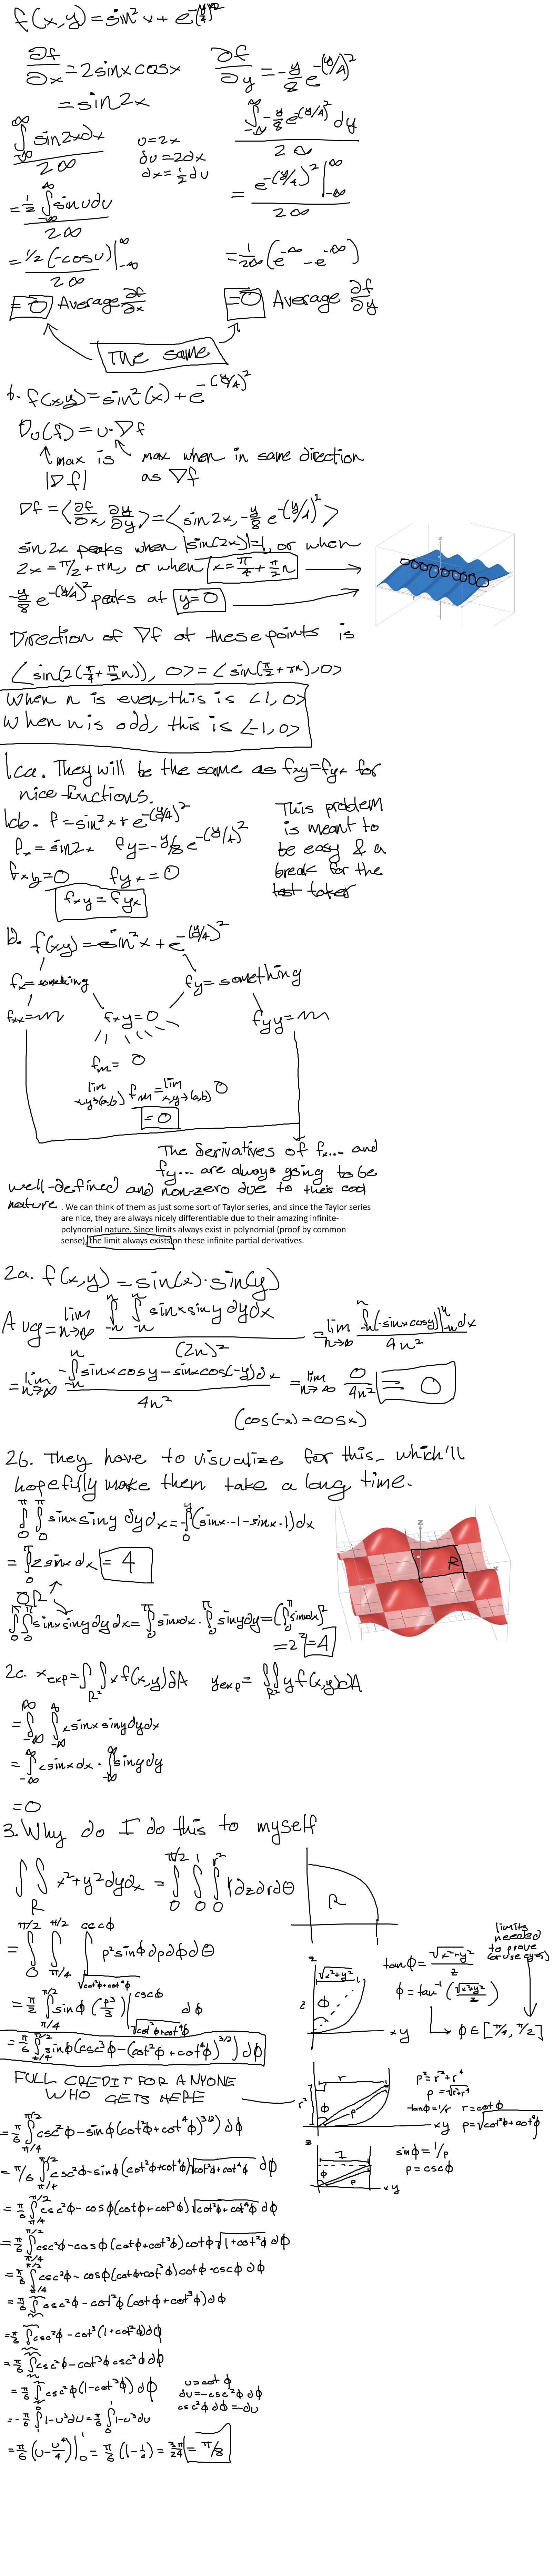 f(x,y)=sin²x+e^-(y/4)²
∂f/∂x=2sinxcosx
=sin2x
∫_-∞^∞ sin2xdx / 2∞
u=2x
du=2dx
dx=½du
=½∫_-∞^∞ sinudu / 2∞
=½(-cosu)|_-∞^∞ / 2∞
=0 Average ∂f/∂x
∂f/∂y=-y/8 e^-(y/4)²
∫_-∞^∞ -y/8 e^-(y/4)² dy / 2∞
= e^-(y/4)²|_-∞^∞ / 2∞
=1/2∞(e^-∞-e^-∞)
=0 Average ∂f/∂y
The same
b. f(x,y)=sin²(x)+e^-(y/4)²
D_u(f)=u·∇f
max is |∇f|
max when in same direction as ∇f
∇f=<∂f/∂x, ∂f/∂y>=<sin2x, -y/8 e^-(y/4)²>
sin2x peaks when |sin(2x)|=1, or when
2x=π/2+πn, or when x=π/4+π/2 n
-y/8 e^-(y/4)² peaks at y=0
Direction of ∇f at these points is
<sin(2(π/4+π/2 n)), 0>=<sin(π/2+πn),0>
When n is even, this is <1,0>
When n is odd, this is <-1,0>
1ca. They will be the same as fxy=fyx for
nice functions.
1cb. f=sin²x+e^-(y/4)²
fx=sin2x fy=-y/8 e^-(y/4)²
fxy=0 fyx=0
fxy=fyx
This problem
is meant to
be easy & a
break for the
test taker
1d. f(x,y)=sin²x+e^-(y/4)²
fx=something fy=something
fxx= fxy=0 fyy=
fm=0
lim x,y→(a,b) fm=lim x,y→(a,b) 0
=0
The derivatives of fx... and
fy... are always going to be
well-defined and non-zero due to their cool
nature. We can think of them as just some sort of Taylor series, and since the Taylor series
are nice, they are always nicely differentiable due to their amazing infinite-
polynomial nature. Since limits always exist in polynomial (proof by common
sense), the limit always exists on these infinite partial derivatives.
2a. f(x,y)=sin(x)·sin(y)
Avg=lim n→∞ ∫_-n^n ∫_-n^n sinxsiny dydx / (2n)² =lim n→∞ ∫_-n^n(-sinxcosy)|_-n^n dx / 4n²
=lim n→∞ -∫_-n^n sinxcosy-sinxcos(-y)dx / 4n² =lim n→∞ 0/4n² = 0
(cos(-x)=cosx)
2b. They have to visualize for this, which'll
hopefully make them take a long time.
∫_0^π ∫_0^π sinxsiny dydx=-∫_0^π(sinx·-1-sinx·1)dx
=∫_0^π 2sinx dx =4
R
OR
∫_0^π ∫_0^π sinxsinydydx=∫_0^π sinxdx·∫_0^π sinydy=(∫_0^π sinxdx)²
=2²=4
2c. x_exp=∫∫_R² x f(x,y)dA y_exp=∫∫_R² y f(x,y)dA
=∫_-∞^∞ ∫_-∞^∞ xsinxsinydydx
=∫_-∞^∞ xsinxdx·∫_-∞^∞ sinydy
=0
3. Why do I do this to myself
∫∫_R x²+y²dydx = ∫_0^π/2 ∫_0^1 ∫_0^r² r dzdrdθ
R
=∫_0^π/2 ∫_π/4^π/2 ∫_√(cot²ϕ+cot⁴ϕ)^cscϕ ρ²sinϕdρdϕdθ
=π/2 ∫_π/4^π/2 sinϕ(ρ³/3)|_√(cot²ϕ+cot⁴ϕ)^cscϕ dϕ
=π/6 ∫_π/4^π/2 sinϕ(csc³ϕ-(cot²ϕ+cot⁴ϕ)^3/2)dϕ
limits
needed
to prove
(or use eyes)
z √(x²+y²) ϕ z xy
tanϕ=√(x²+y²)/z
ϕ=tan⁻¹(√(x²+y²)/z)
ϕ∈[π/4,π/2]
FULL CREDIT FOR ANYONE
WHO GETS HERE
z r r² ϕ ρ xy
ρ²=r²+r⁴
ρ=√(r²+r⁴)
tanϕ=1/r r=cotϕ
ρ=√(cot²ϕ+cot⁴ϕ)
z 1 ϕ ρ xy
sinϕ=1/ρ
ρ=cscϕ
=π/6 ∫_π/4^π/2 csc²ϕ-sinϕ(cot²ϕ+cot⁴ϕ)^3/2 dϕ
=π/6 ∫_π/4^π/2 csc²ϕ-sinϕ(cot²ϕ+cot⁴ϕ)√(cot²ϕ+cot⁴ϕ) dϕ
=π/6 ∫_π/4^π/2 csc²ϕ-cosϕ(cotϕ+cot³ϕ)√(cot²ϕ+cot⁴ϕ) dϕ
=π/6 ∫_π/4^π/2 csc²ϕ-cosϕ(cotϕ+cot³ϕ)cotϕ√(1+cot²ϕ) dϕ
=π/6 ∫_π/4^π/2 csc²ϕ-cosϕ(cotϕ+cot³ϕ)cotϕ·cscϕ dϕ
=π/6 ∫ csc²ϕ-cot²ϕ(cotϕ+cot³ϕ)dϕ
=π/6 ∫ csc²ϕ-cot³(1+cot²ϕ)dϕ
=π/6 ∫ csc²ϕ-cot³ϕcsc²ϕdϕ
=π/6 ∫ csc²ϕ(1-cot³ϕ)dϕ
u=cotϕ
du=-csc²ϕdϕ
csc²ϕdϕ=-du
=-π/6 ∫_1^0 1-u³du=π/6 ∫_0^1 1-u³du
=π/6(u-u⁴/4)|_0^1=π/6(1-1/4)=3π/24=π/8